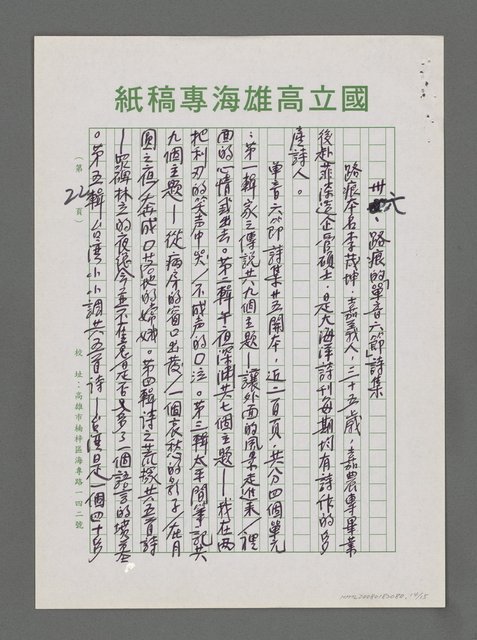 國立高雄海專稿紙
卅六、路痕的「單音六節」詩集
路痕本名李茂坤,嘉義人,三十五歲,嘉農專畢業
後赴菲深造企管碩士,是大海洋詩刊每期均有詩作的多
產詩人。
單音六節詩集廿五開本,近二百頁,共分四個單元
,第一輯家之傳說共九個主題—讓外面的風景走進來/裡
面的心情出去。第二輯午夜深淵共七個主題—我在兩
把利刃的笑声中哭/不成声的口泣。第三輯太平間筆記共
九個主題—從病房的窗口出發/一個哀愁的影子/在月
圓之夜/成口的嫦娥。第四輯詩之荒塚共五首詩
—碑林立的夜很冷並不在意是否又多了一個語言的墳墓
。第五輯台灣小小調共五首詩—台灣只是一個四十多
(第22頁)
校址:高雄市楠梓區海專路一四二號
14/15